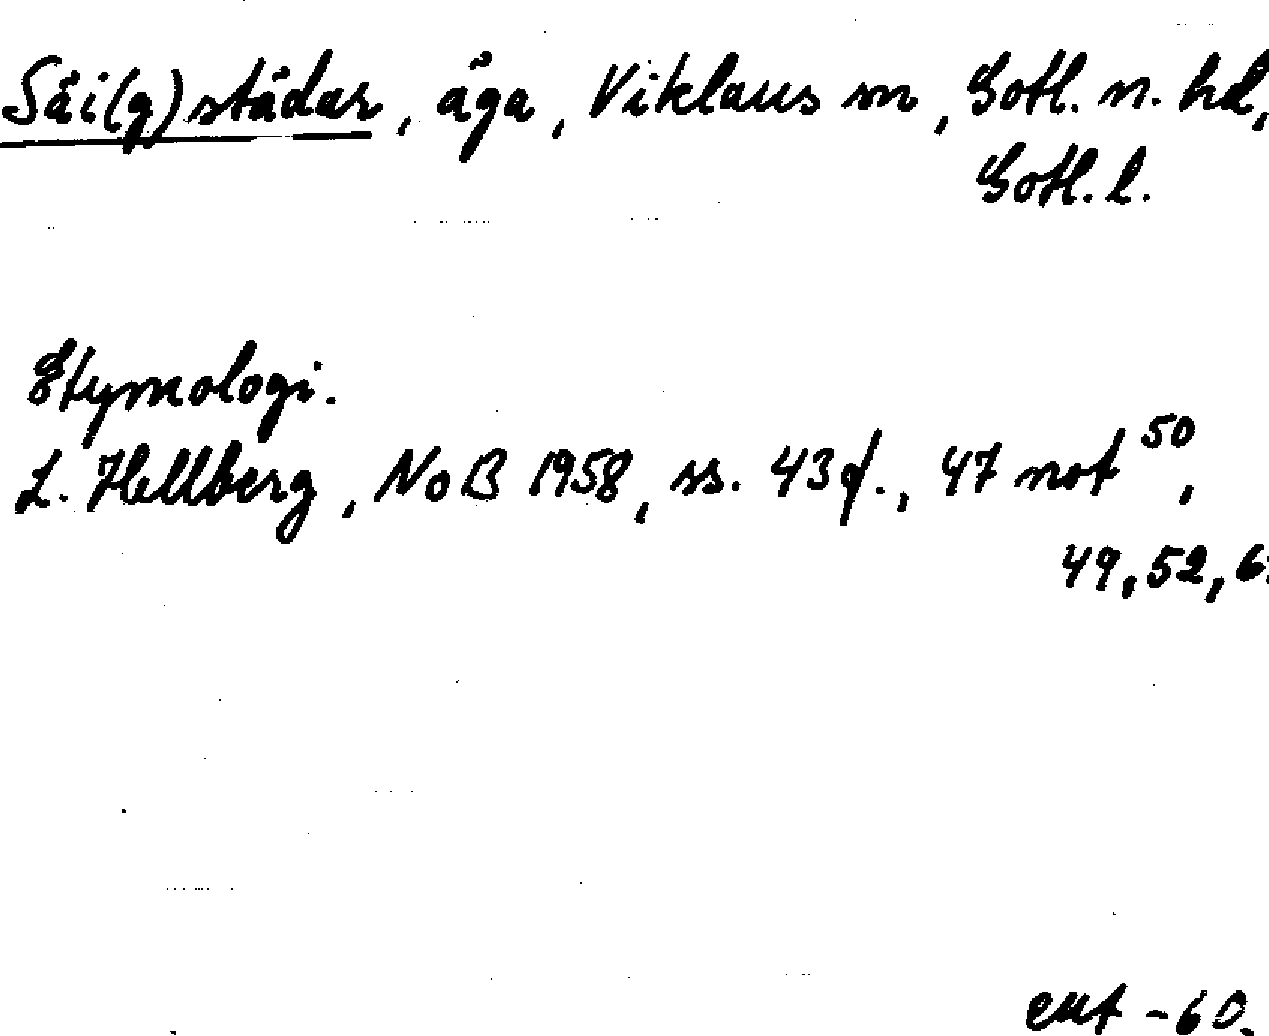 Säi(g)städar, äga, Viklaus sn, Gotl. n. hd,
Gotl. l.
Etymologi.
L. Hellberg, NoB 1958, ss. 43 f., 47 not 50,
49, 52,
-60.